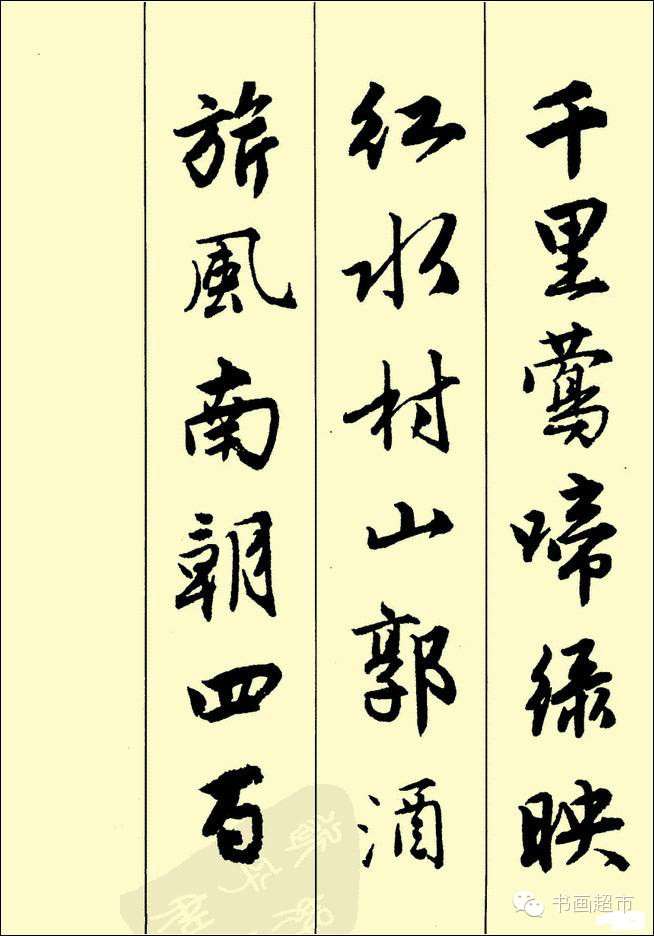 千里鶯啼緑映
紅水村山郭酒
旂風南朝四百
书画超市